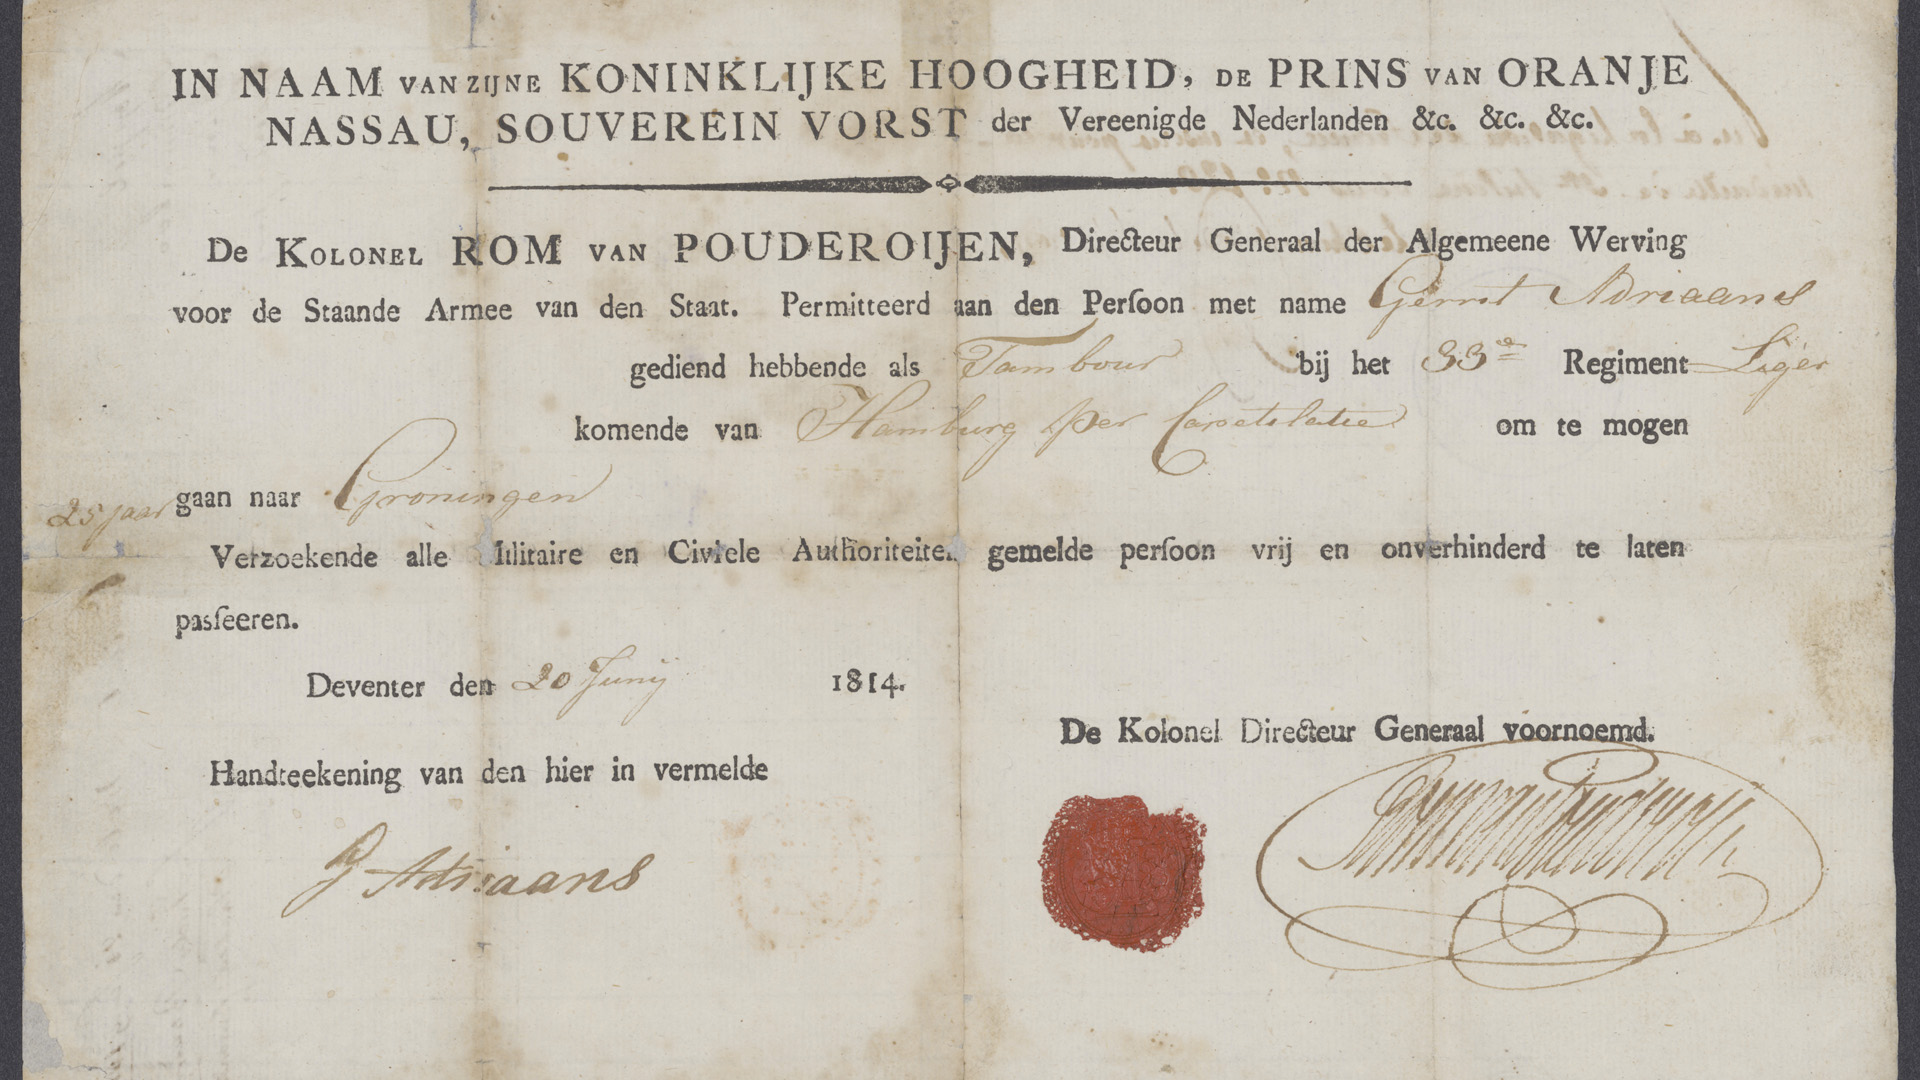 IN NAAM VAN ZIJNE KONINKLIJKE HOOGHEID, DE PRINS VAN ORANJE
NASSAU, SOUVEREIN VORST der Vereenigde Nederlanden &c. &c. &c.
De KOLONEL ROM VAN POUDEROIJEN, Directeur Generaal der Algemeene Werving
voor de Staande Armee van den Staat. Permitteerd aan den Perſoon met name Gerrit Adriaans
gediend hebbende als Tambour bij het 33e Regiment Liger
komende van Hamburg per Capetulatie om te mogen
25 jaar gaan naar Groningen
Verzoekende alle Militaire en Civiele Authoriteiten gemelde perſoon vrij en onverhinderd te laten
pasſeeren.
Deventer den 20 Junij 1814.
De Kolonel Directeur Generaal voornoemd.
Handteekening van den hier in vermelde
G Adriaans